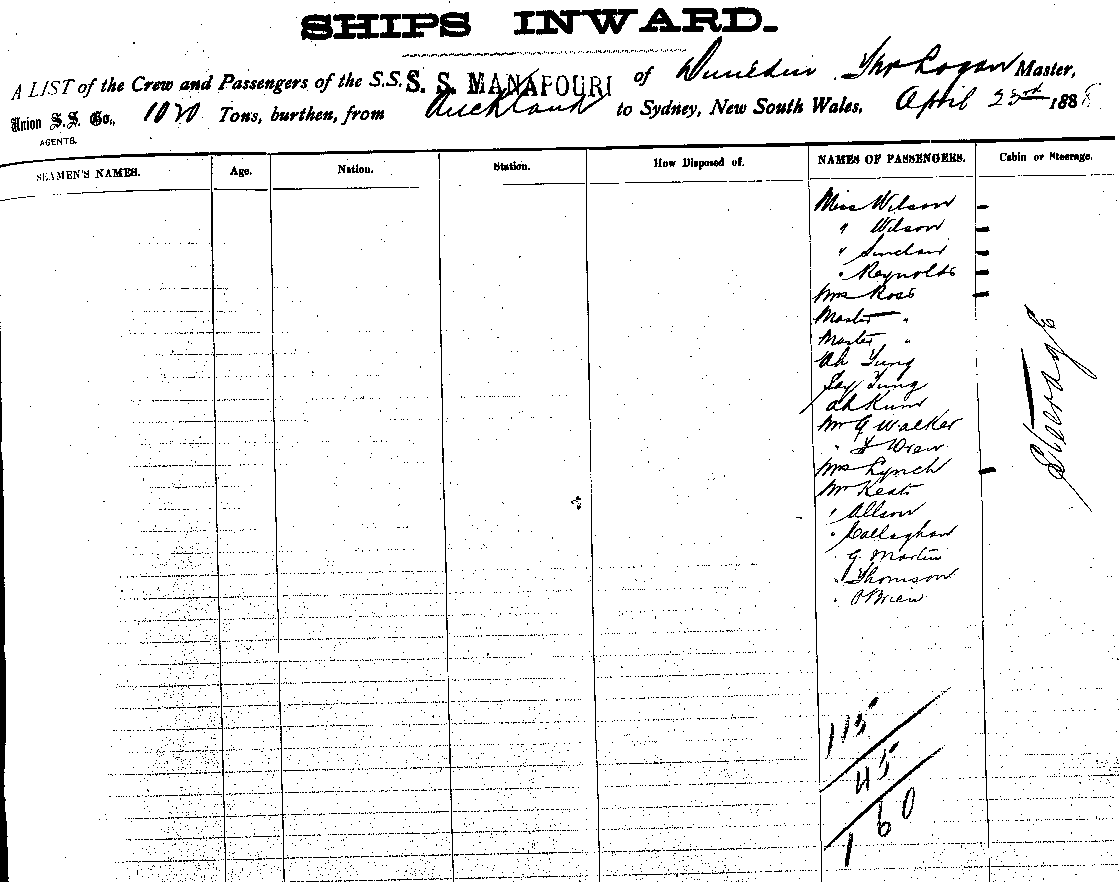 SHIPS INWARD.
A LIST of the Crew and Passengers of the S.S. S. S. MANAPOURI of Dunedin Logan Master,
Union S.S. Co., Tons, burthen, from Auckland to Sydney, New South Wales, April 23rd 1888
AGENTS.
SEAMEN'S NAMES. Age. Nation. Station. How Disposed of. NAMES OF PASSENGERS. Cabin or Steerage.
Miss Wilson -
" Wilson -
" Sinclair -
" Reynolds -
Mrs Ross -
Master "
Master "
Ah Tung
Tung
Ah Kum
Mr G Walker
" Drew
Mrs Lynch -
Mr Keats
" Allson
" Callaghan
G. Martin
" Thomson
" O'Brien
Steerage
115
45
160